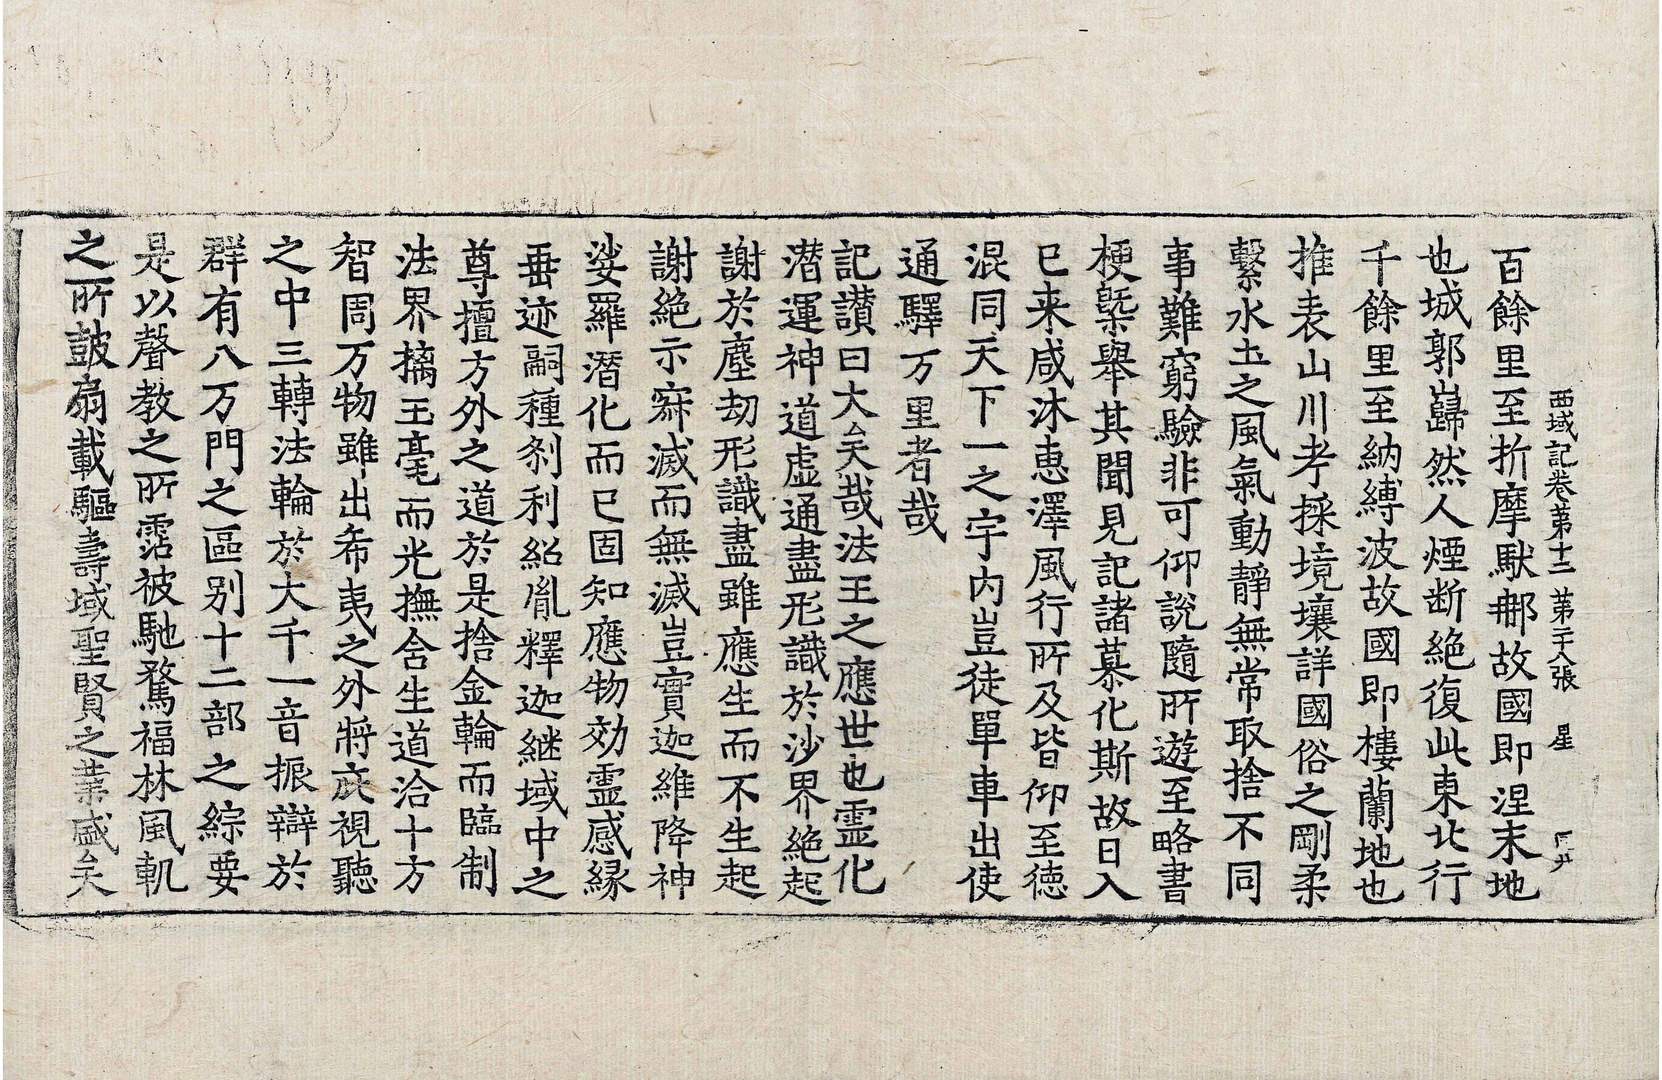 西域記卷第十二 第二十八張 星
百餘里至折摩馱那故國即涅末地
也城郭巋然人煙断絶復此東北行
千餘里至納縛波故國即樓蘭地也
推表山川考採境壤詳國俗之剛柔
繫水土之風氣動靜無常取捨不同
事難窮驗非可仰說隨所遊至略書
梗槩舉其聞見記諸慕化斯故日入
已来咸沐恵澤風行所及皆仰至德
混同天下一之宇內豈徒單車出使
通驛万里者哉
記讃曰大矣哉法王之應世也霊化
潜運神道虛通盡形識於沙界絶起
謝於塵劫形識盡雖應生而不生起
謝絶示寂滅而無滅豈實迦維降神
娑羅潜化而已固知應物効霊感縁
垂迹嗣種剎利紹胤釋迦継域中之
尊擅方外之道於是捨金輪而臨制
法界摛玉毫而光撫含生道洽十方
智周万物雖出希夷之外將庇視聽
之中三轉法輪於大千一音振辯於
群有八万門之區別十二部之綜要
是以聲教之所霑被馳騖福林風軌
之所鼓扇載驅壽域聖賢之業盛矣